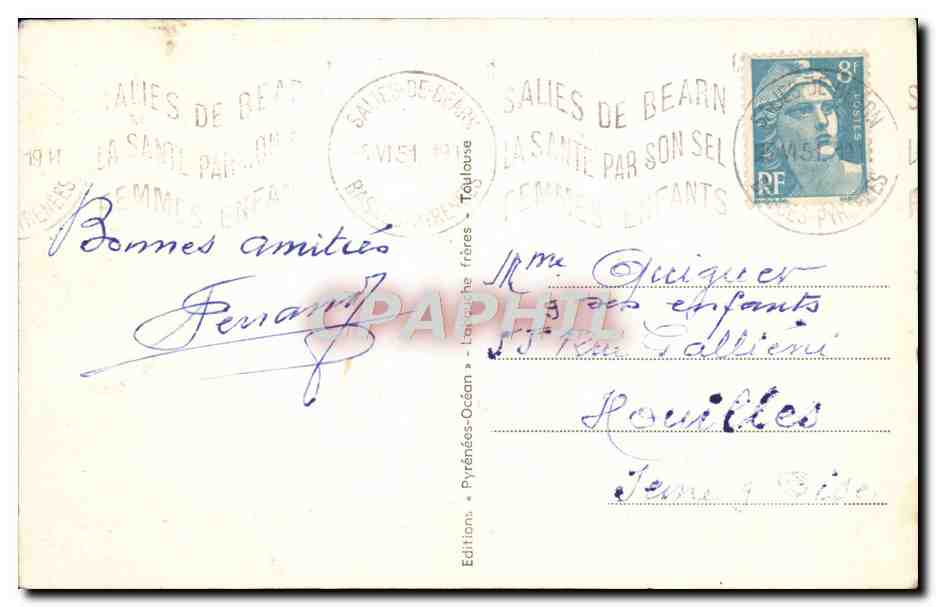 SALIES DE BEARN
LA SANTÉ PAR SON SEL
FEMMES ENFANTS
SALIES-DE-BEARN
6 VI 51
BASSES-PYRENEES
SALIES DE BEARN
LA SANTÉ PAR SON SEL
FEMMES ENFANTS
8F
POSTES
RF
Bonnes amitiés
CPAPHIL
Editions « Pyrénées-Océan » - Larrouche frères - Toulouse
Mme Quiguer
& ses enfants
55 Rue Galliéni
Houilles
Seine & Oise